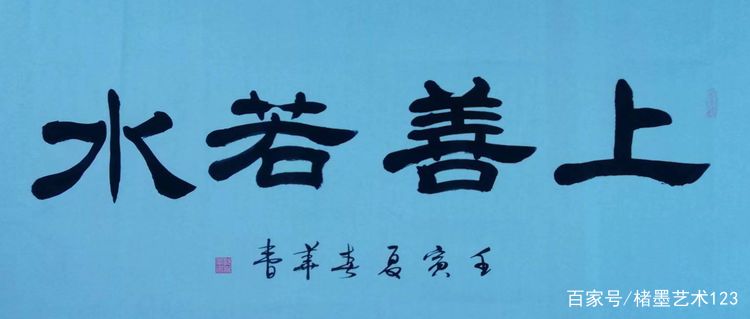 上善若水
壬寅夏春華書
百家号/楮墨艺术123